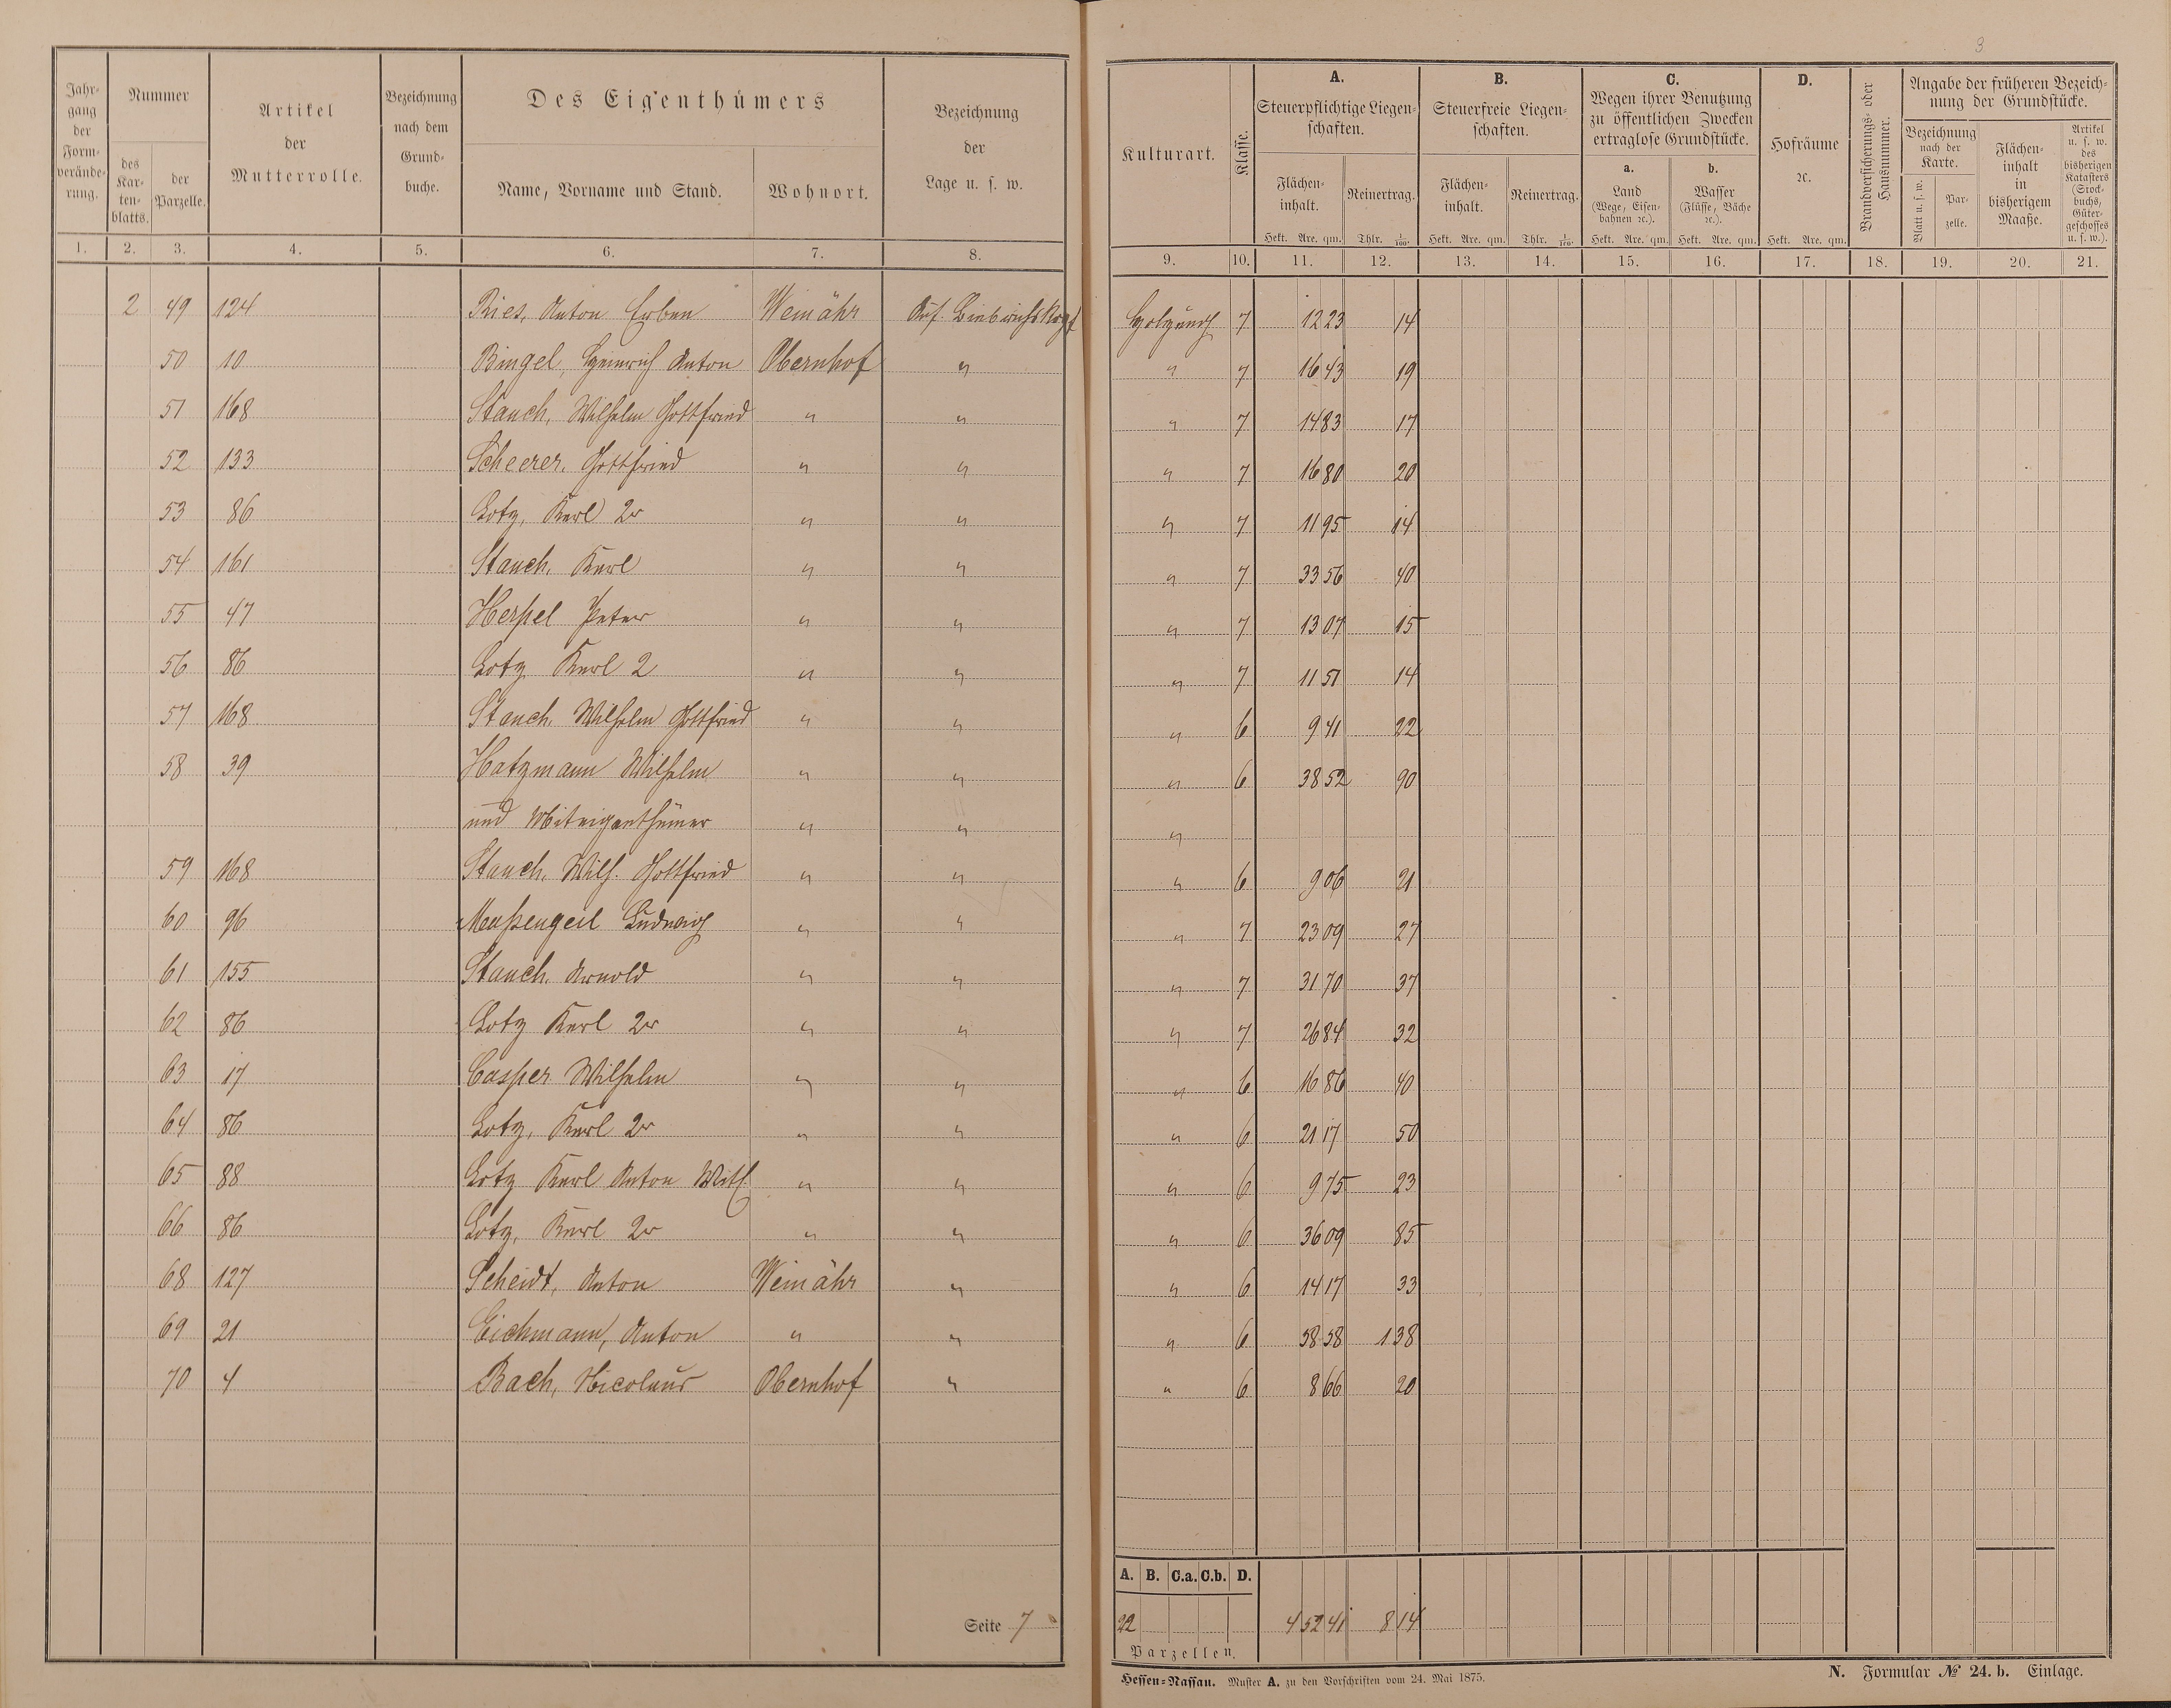 3
Jahrgang der Formveränderung.
Nummer
des Kartenblatts.
der Parzelle.
Artikel der Mutterrolle.
Bezeichnung nach dem Grundbuche.
Des Eigenthümers
Name, Vorname und Stand.
Wohnort.
Bezeichnung der Lage u. s. w.
Kulturart.
Klasse.
A.
Steuerpflichtige Liegenschaften.
Flächeninhalt.
Hekt. Are. qm.
Reinertrag.
Thlr. 1/100.
B.
Steuerfreie Liegenschaften.
Flächeninhalt.
Hekt. Are. qm.
Reinertrag.
Thlr. 1/100.
C.
Wegen ihrer Benutzung zu öffentlichen Zwecken ertraglose Grundstücke.
a. Land (Wege, Eisenbahnen ꝛc.).
Hekt. Are. qm.
b. Wasser (Flüsse, Bäche ꝛc.).
Hekt. Are. qm.
D.
Hofräume ꝛc.
Hekt. Are. qm.
Brandversicherungs- oder Hausnummer.
Angabe der früheren Bezeichnung der Grundstücke.
Bezeichnung nach der Karte.
Blatt u. s. w.
Parzelle.
Flächeninhalt in bisherigem Maaße.
Artikel u. s. w. des bisherigen Katasters (Stockbuchs, Gütergeschosses u. s. w.).
1. 2. 3. 4. 5. 6. 7. 8. 9. 10. 11. 12. 13. 14. 15. 16. 17. 18. 19. 20. 21.
2 49 124 Ries, Anton Erben Weinähr Auf Holzung 7 12 23 14
50 10 Bingel, Heinrich Anton Obernhof " " 7 16 43 19
51 168 Stauch, Wilhelm Gottfried " " " 7 14 83 17
52 133 Scheerer, Gottfried " " " 7 16 80 20
53 86 Lotz, Karl 2r " " " 7 11 95 14
54 161 Stauch, Karl " " " 7 33 56 40
55 47 Herpel Peter " " " 7 13 07 15
56 86 Lotz Karl 2 " " " 7 11 51 14
57 168 Stauch, Wilhelm Gottfried " " " 6 9 41 22
58 39 Hatzmann Wilhelm " " " 6 38 52 90
und Miteigenthümer " " "
59 168 Stauch, Wilh. Gottfried " " " 6 9 06 21
60 96 Maßengeil Ludwig " " " 7 23 09 27
61 155 Stauch, Arnold " " " 7 31 70 37
62 86 Lotz Karl 2r " " " 7 26 84 32
63 17 Casper Wilhelm " " " 6 16 86 40
64 86 Lotz, Karl 2r " " " 6 21 17 50
65 88 Lotz Karl Anton Witl. " " " 6 9 75 23
66 86 Lotz, Karl 2r " " " 6 36 09 85
68 127 Scheidt, Anton Weinähr " " 6 14 17 33
69 21 Eichmann, Anton " " " 6 58 58 1 38
70 4 Bach, Nicolaus Obernhof " " 6 8 66 20
A. B. C.a. C.b. D.
22 4 52 41 8 14
Parzellen.
Seite 7
Hessen-Nassau. Muster A. zu den Vorschriften vom 24. Mai 1875.
N. Formular № 24. b. Einlage.